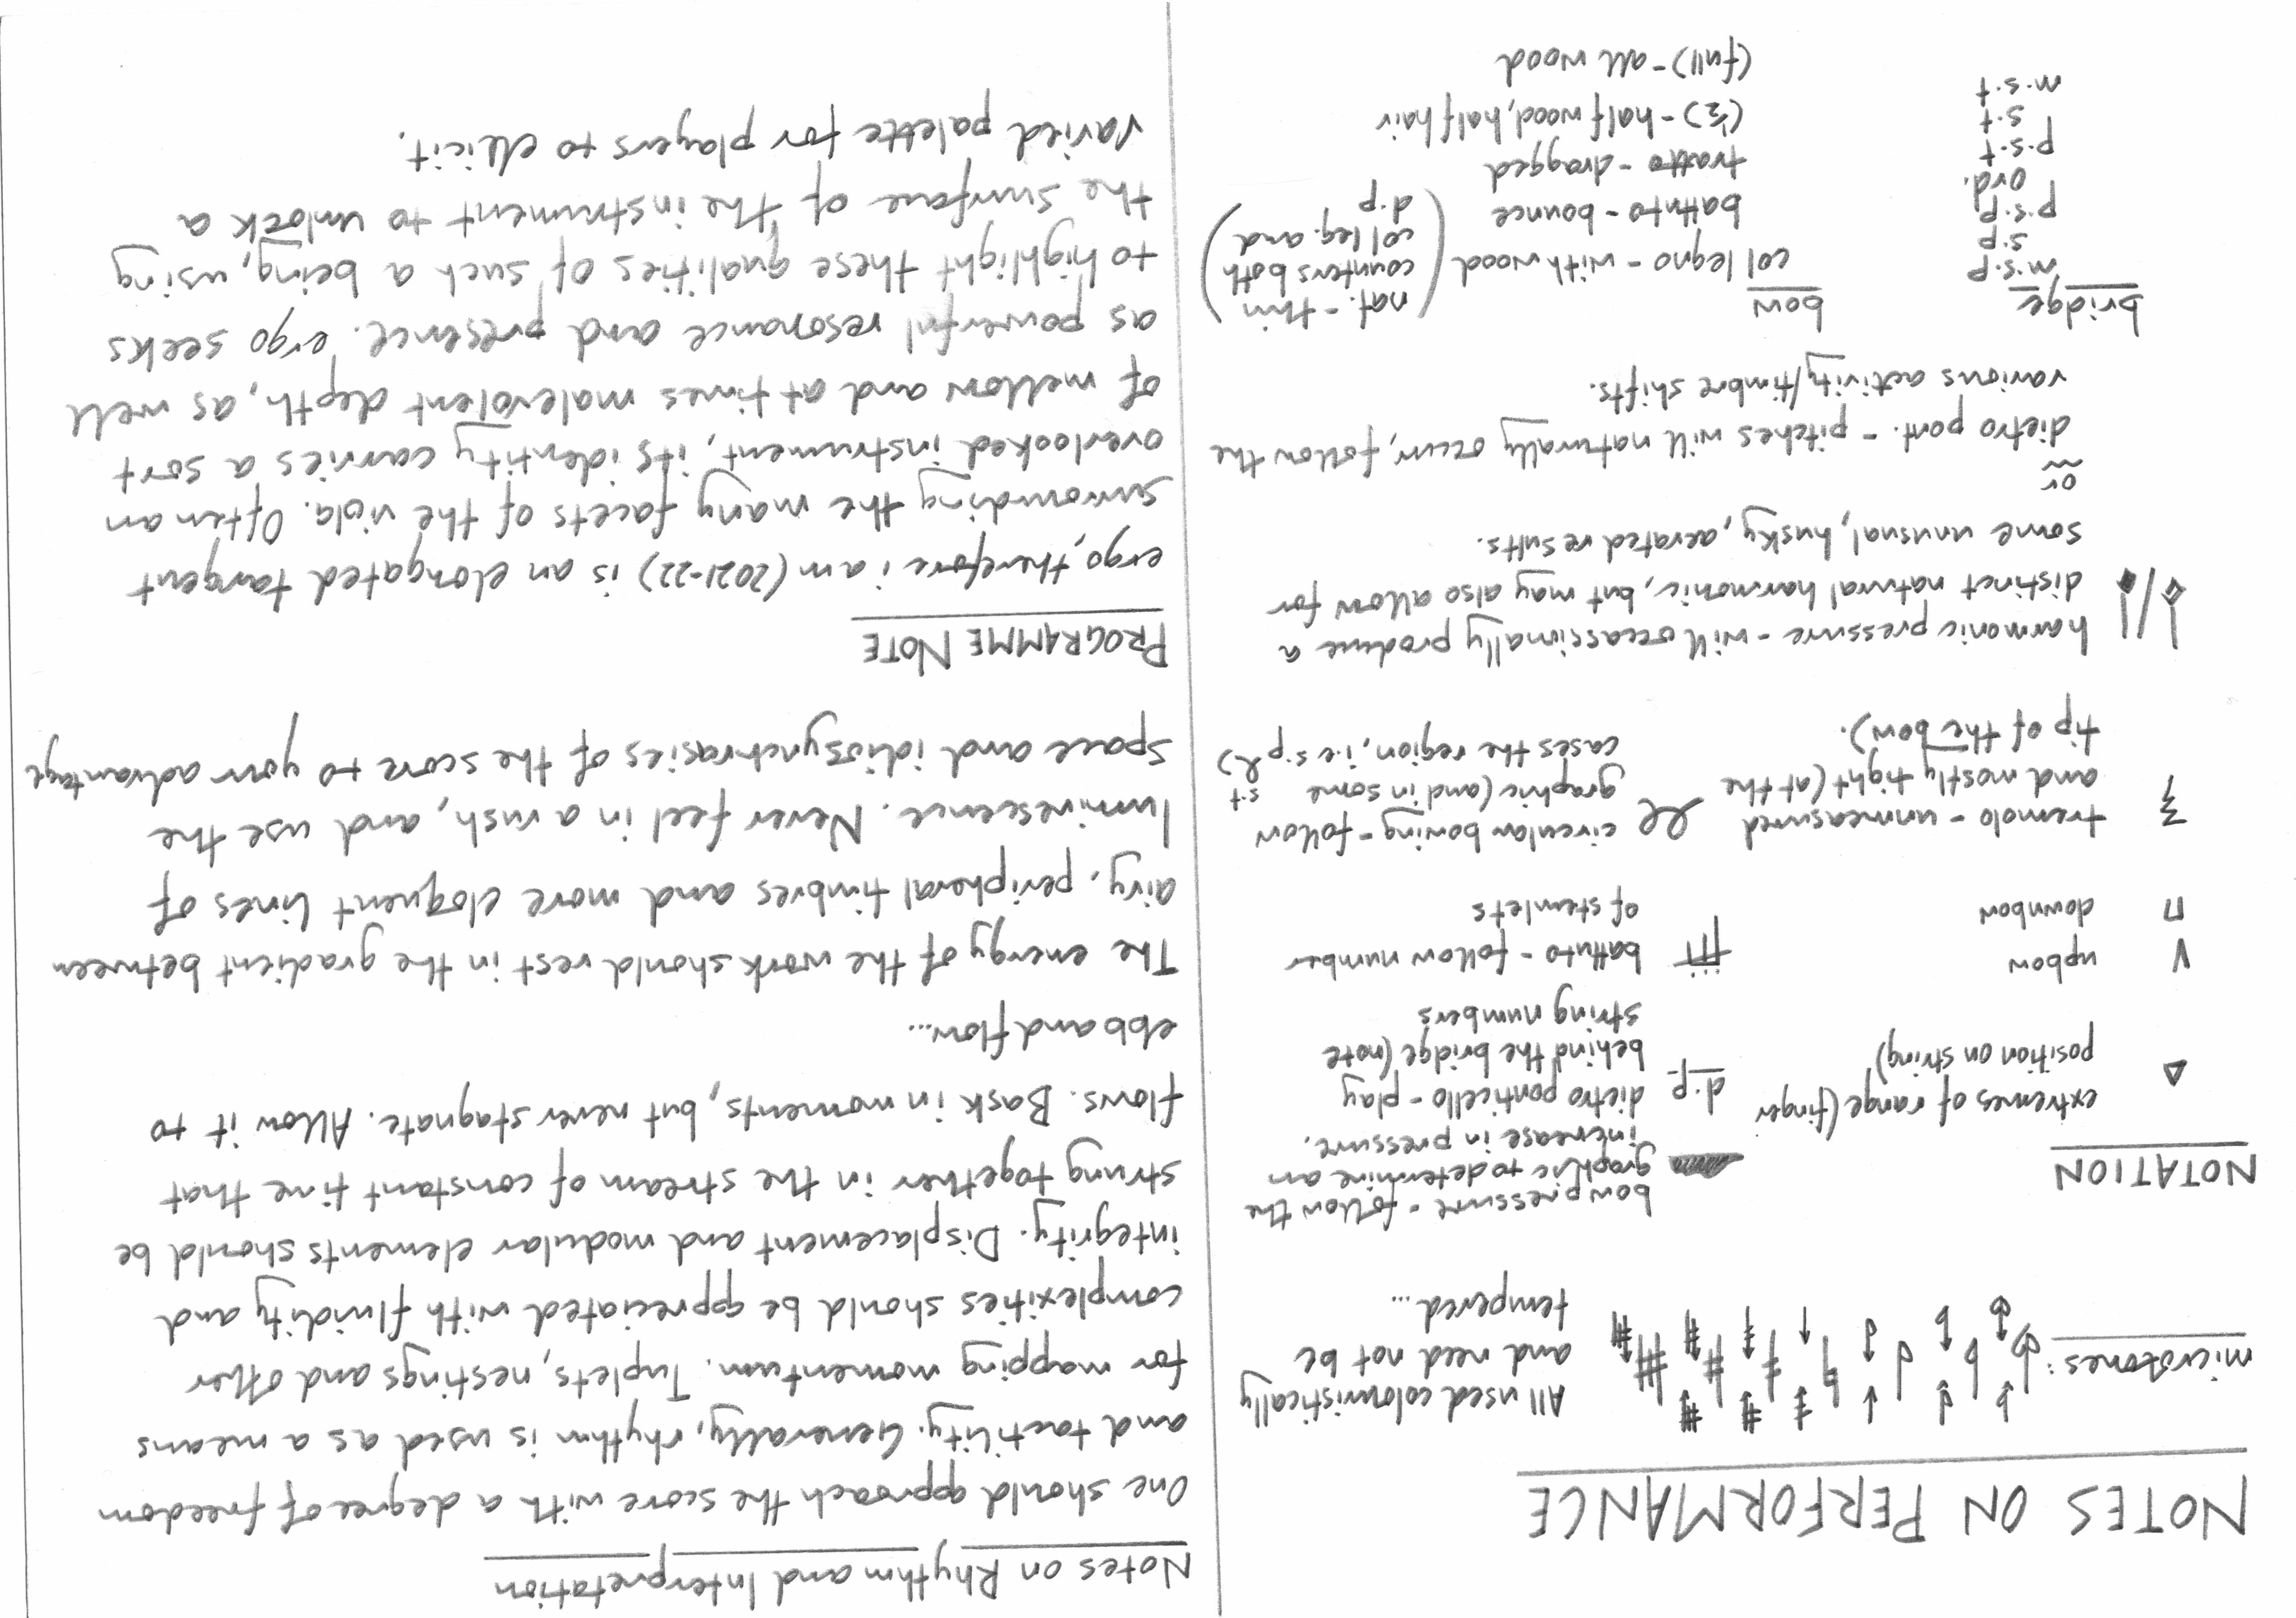 NOTES ON PERFORMANCE
microtones:
All used colouristically
and need not be
tempered...
NOTATION
extremes of range (finger
position on string)
upbow
downbow
tremolo - unmeasured
and mostly tight (at the
tip of the bow).
bow pressure - follow the
graphic to determine an
increase in pressure.
d.p. dietro ponticello - play
behind the bridge (note
string numbers
battuto - follow number
of stemlets
circular bowing - follow
graphic (and in some
cases the region, i.e. s.p s.t)
harmonic pressure - will occassionally produce a
distinct natural harmonic, but may also allow for
some unusual, husky, aerated results.
or
dietro pont. - pitches will naturally occur, follow the
various activity/timbre shifts.
bridge
m.s.p
s.p
p.s.p
ord.
p.s.t
s.t
m.s.t
bow
col legno - with wood
battuto - bounce
tratto - dragged
(½) - half wood, half hair
(full) - all wood
(nat. - thin
counters both
col leg. and
d.p)
Notes on Rhythm and Interpretation
One should approach the score with a degree of freedom
and tactility. Generally, rhythm is used as a means
for mapping momentum. Tuplets, nestings and other
complexities should be appreciated with fluidity and
integrity. Displacement and modular elements should be
strung together in the stream of constant time that
flows. Bask in moments, but never stagnate. Allow it to
ebb and flow...
The energy of the work should rest in the gradient between
airy, peripheral timbres and more eloquent lines of
luminescence. Never feel in a rush, and use the
space and idiosynchrasies of the score to your advantage
PROGRAMME NOTE
ergo, therefore i am (2021-22) is an elongated tangent
surrounding the many facets of the viola. Often an
overlooked instrument, its identity carries a sort
of mellow and at times malevolent depth, as well
as powerful resonance and presence. ergo seeks
to highlight these qualities of such a being, using
the surface of the instrument to unlock a
varied palette for players to elicit.